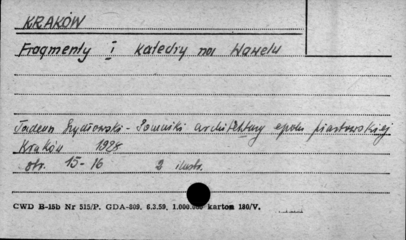 KRAKÓW
Fragmenty I katedry na Wawelu
Tadeusz Szydłowski - Pomniki architektury epoki piastowskiej
Kraków 1928
str. 15-16 3 ilustr.
CWD B-15b Nr 515/P. GDA-809. 6.3.59. 1.000.000 karton 180/V.